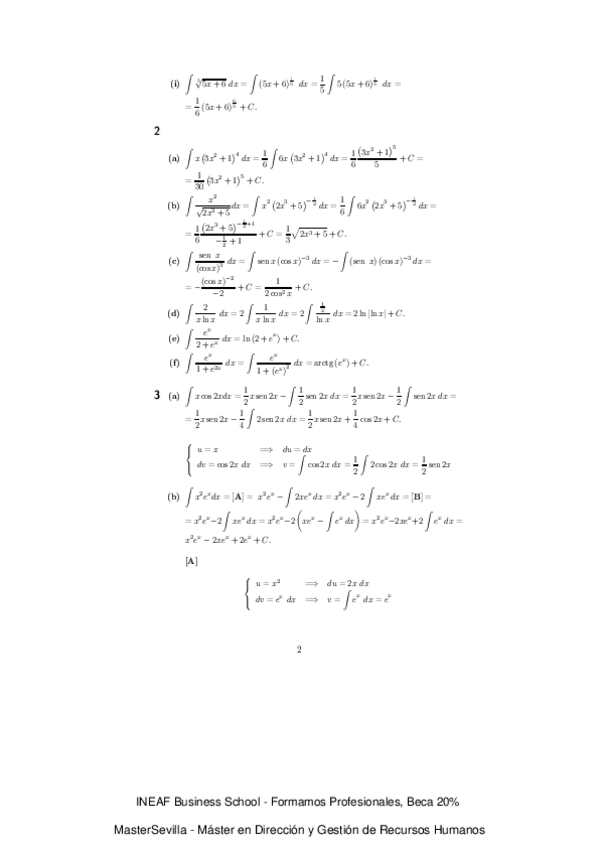 (i) ∫ ⁵√(5x + 6) dx = ∫ (5x + 6)^(1/5) dx = 1/5 ∫ 5 (5x + 6)^(1/5) dx =
= 1/6 (5x + 6)^(6/5) + C.
2
(a) ∫ x (3x² + 1)⁴ dx = 1/6 ∫ 6x (3x² + 1)⁴ dx = 1/6 (3x² + 1)⁵/5 + C =
= 1/30 (3x² + 1)⁵ + C.
(b) ∫ x²/√(2x³ + 5) dx = ∫ x² (2x³ + 5)^(-1/2) dx = 1/6 ∫ 6x² (2x³ + 5)^(-1/2) dx =
= 1/6 (2x³ + 5)^(-1/2 + 1)/(-1/2 + 1) + C = 1/3 √(2x³ + 5) + C.
(c) ∫ sen x/(cos x)³ dx = ∫ sen x (cos x)⁻³ dx = − ∫ (sen x) (cos x)⁻³ dx =
= − (cos x)⁻²/−2 + C = 1/(2 cos² x) + C.
(d) ∫ 2/(x ln x) dx = 2 ∫ 1/(x ln x) dx = 2 ∫ (1/x)/(ln x) dx = 2 ln |ln x| + C.
(e) ∫ eˣ/(2 + eˣ) dx = ln (2 + eˣ) + C.
(f) ∫ eˣ/(1 + e²ˣ) dx = ∫ eˣ/(1 + (eˣ)²) dx = arctg (eˣ) + C.
3 (a) ∫ x cos 2x dx = 1/2 x sen 2x − ∫ 1/2 sen 2x dx = 1/2 x sen 2x − 1/2 ∫ sen 2x dx =
= 1/2 x sen 2x − 1/4 ∫ 2 sen 2x dx = 1/2 x sen 2x + 1/4 cos 2x + C.
u = x ⟹ du = dx
dv = cos 2x dx ⟹ v = ∫ cos 2x dx = 1/2 ∫ 2 cos 2x dx = 1/2 sen 2x
(b) ∫ x²eˣ dx = [A] = x²eˣ − ∫ 2xeˣ dx = x²eˣ − 2 ∫ xeˣ dx = [B] =
= x²eˣ − 2 ∫ xeˣ dx = x²eˣ − 2 (xeˣ − ∫ eˣ dx) = x²eˣ − 2xeˣ + 2 ∫ eˣ dx =
x²eˣ − 2xeˣ + 2eˣ + C.
[A]
u = x² ⟹ du = 2x dx
dv = eˣ dx ⟹ v = ∫ eˣ dx = eˣ
2
INEAF Business School - Formamos Profesionales, Beca 20%
MasterSevilla - Máster en Dirección y Gestión de Recursos Humanos